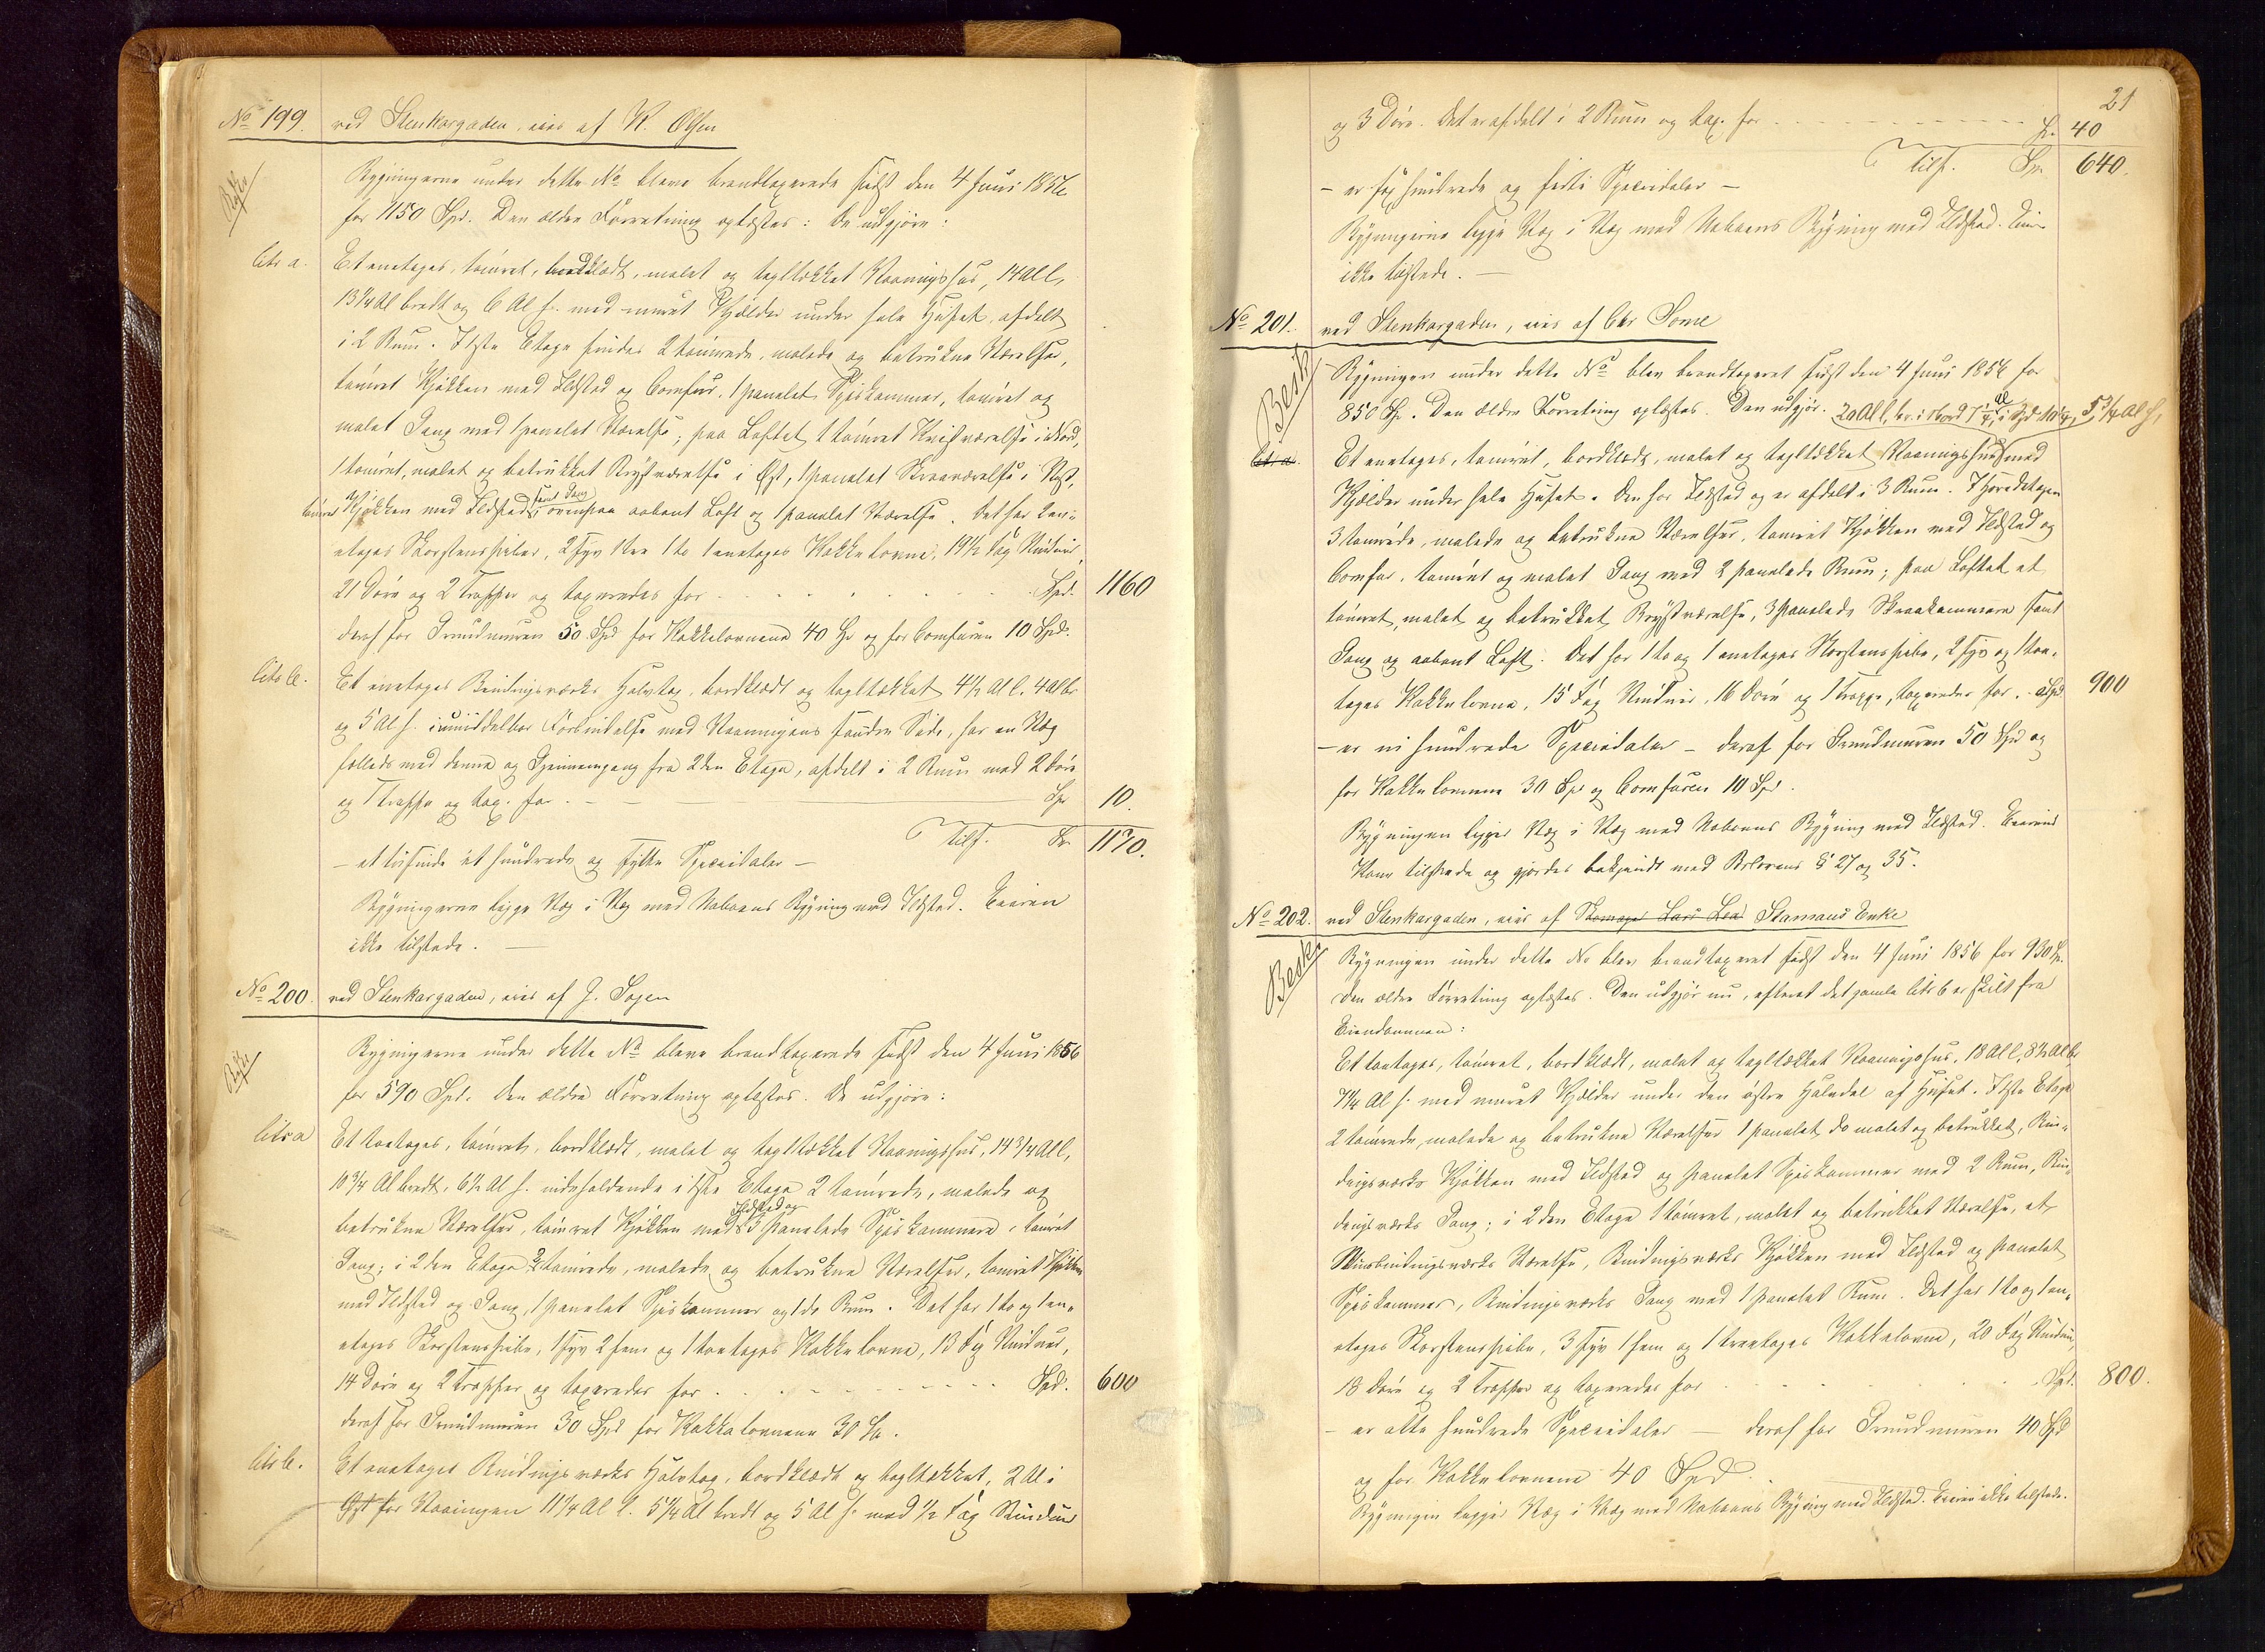 No 199. ved Stenkargaden, eies af K. Olsen
Bygningerne under dette No bleve brandtaxerede sidst den 4 Juni 1856
for 1150 Spd. Den ældre Forretning oplæstes: De udgjøre:
litr a. Et enetages, tømret, bordklædt, malet og tagltækket Vaaningshus, 14 Al l,
13 1/4 Al bredt og 6 Al h. med muret Kjælder under hele Huset, afdelt
i 2 Rum. I 1ste Etage findes 2 tømrede, malede og betrukne Værelser,
tømret Kjøkken med Ildsted og Comfur, 1 panelet Spiskammer, tømret og
malet Gang med 1 panelet Værelse; paa Loftet 1 tømret Kvistværelse i Nord,
1 tømret, malet og betrukket Brystværelse i Øst, 1 panelet Skraaværelse i Vest,
tømret Kjøkken med Ildsted samt Gang, ovenpaa aabent Loft og 1 panelet Værelse. Det har 2 en-
etages Skorstenspiber, 2 syv 1 tre 1 to 1 enetages Kakkelovne, 19 1/2 Fag Vinduer,
21 Døre og 2 Trapper og taxeredes for - - - Spd. 1160
deraf for Grundmuren 50 Spd for Kakkelovnene 40 Sp og for Comfuren 10 Spd.
litr b. Et enetages Bindingsværks Halvtag, bordklædt og tagltækket 4 1/2 Al l. 4 Al br
og 5 Al h. i umiddelbar Forbindelse med Vaaningens søndre Side, har en Væg
fælleds med denne og Gjennemgang fra 2den Etage, afdelt i 2 Rum med 2 Døre
og 1 Trappe og tax. for - - - Sp 10.
Tils. Sp. 1170.
- et tusinde et hundrede og sytti Speciedaler -
Bygningerne ligge Væg i Væg med Naboens Bygning med Ildsted. Eieren
ikke tilstede. -
No 200. ved Stenkargaden, eies af J. Sagen
Bygningerne under dette No bleve brandtaxerede sidst den 4 Juni 1856
for 590 Spd. Den ældre Forretning oplæstes. De udgjøre:
litr a Et toetages, tømret, bordklædt, malet og tagltækket Vaaningshus, 14 3/4 Al l,
10 3/4 Al bredt, 6 1/2 Al h. indeholdende i 1ste Etage 2 tømrede, malede og
betrukne Værelser, tømret Kjøkken med Ildsted og 3 panelede Spiskammere, tømret
Gang; i 2den Etage 2 tømrede, malede og betrukne Værelser, tømret Kjøkken
med Ildsted og Gang, 1 panelet Spiskammer og 1 do Rum. Det har 1 to og 1 en-
etages Skorstenspibe, 1 syv 2 fem og 1 toetages Kakkelovne, 13 Fag Vinduer,
14 Døre og 2 Trapper og taxeredes for - - - Spd. 600
deraf for Grundmuren 30 Spd for Kakkelovnene 30 Sp.
litr b. Et enetages Bindingsværks Halvtag, bordklædt og tagltækket, 2 Al i
Øst for Vaaningen 11 1/4 Al l. 5 3/4 Al bredt og 5 Al h. med 1/2 Fag Vinduer
21
og 3 Døre. Det er afdelt i 2 Rum og tax. for - - - Sp. 40
Tils. Sp. 640.
- er sex hundrede og firti Speciedaler -
Bygningerne ligge Væg i Væg med Naboens Bygning med Ildsted. Eieren
ikke tilstede. -
No 201. ved Stenkargaden, eies af Chr Some
Besk
Bygningen under dette No blev brandtaxeret sidst den 4 Juni 1856 for
850 Sp. Den ældre Forretning oplæstes. Den udgjør. 20 Al l, br. i Nord 7 1/4 Al, i Syd 10 1/4, 5 3/4 Al h,
litr a. Et enetages, tømret, bordklædt, malet og tagltækket Vaaningshus med
Kjælder under hele Huset. Den har Ildsted og er afdelt i 3 Rum. I Hovedetagen
3 tømrede, malede og betrukne Værelser, tømret Kjøkken med Ildsted og
Comfur, tømret og malet Gang med 2 panelede Rum; paa Loftet et
tømret, malet og betrukket Brystværelse, 3 panelede Skraakammere samt
Gang og aabent Loft. Det har 1 to og 1 enetages Skorstenspibe, 2 syv og 1 toe-
tages Kakkelovne, 15 Fag Vinduer, 16 Døre og 1 Trappe, taxeredes for - Spd 900
- er ni hundrede Speciedaler - deraf for Grundmuren 50 Spd og
for Kakkelovnene 30 Sp og Comfuren 10 Spd.
Bygningen ligger Væg i Væg med Naboens Bygning med Ildsted. Eierens
Kone tilstede og gjordes bekjendt med Brlovens § 27 og 35.
No 202. ved Stenkargaden, eies af Skomager Lars Lea Stamaus Enke
Besk
Bygningen under dette No blev brandtaxeret sidst den 4 Juni 1856 for 930 Sp.
Den ældre Forretning oplæstes. Den udgjør nu, efterat det gamle litr b er skilt fra
Eiendommen:
Et toetages, tømret, bordklædt, malet og tagltækket Vaaningshus, 18 Al l, 8 1/2 Al br
7 1/4 Al h. med muret Kjælder under den østre Halvdel af Huset. I 1ste Etage
2 tømrede, malede og betrukne Værelser 1 panelet do malet og betrukket, Bin-
dingsværks Kjøkken med Ildsted og panelet Spiskammer med 2 Rum, Bin-
dingsværks Gang; i 2den Etage 1 tømret, malet og betrukket Værelse, et
Bindingsværks Værelse, Bindingsværks Kjøkken med Ildsted og panelet
Spiskammer, Bindingsværks Gang med 1 panelet Rum. Det har 1 to og 1 en-
etages Skorstenspibe, 3 syv 1 fem og 1 treetages Kakkelovne, 20 Fag Vinduer,
18 Døre og 2 Trapper og taxeredes for - - - Spd. 800.
- er otte hundrede Speciedaler - deraf for Grundmuren 40 Spd
og for Kakkelovnene 40 Spd.
Bygningen ligger Væg i Væg med Naboens Bygning med Ildsted. Eieren ikke tilstede.